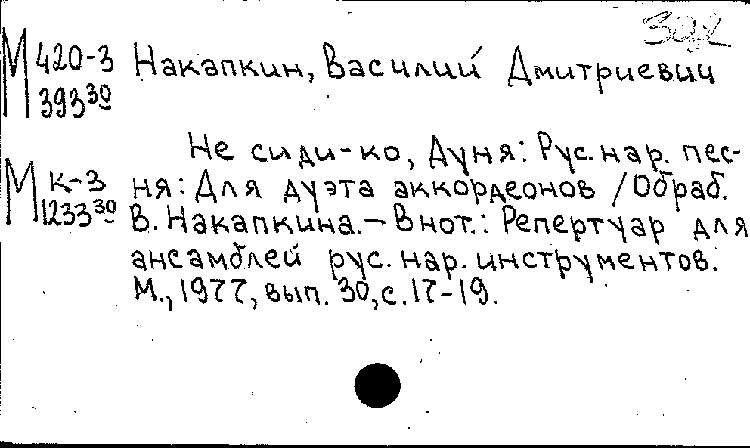 302
М 420-3 Накапкин, Василий Дмитриевич
393 30
Не сиди-ко, Дуня: Рус. нар. пес-
М К-3 ня: Для дуэта аккордеонов / Обраб.
1233 30 В. Накапкина. — В нот.: Репертуар для
ансамблей рус. нар. инструментов.
М., 1977, вып. 30, с. 17-19.